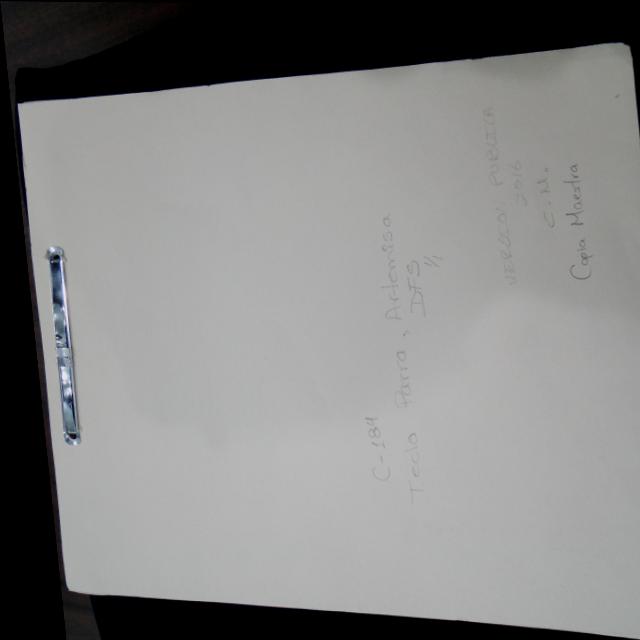 C-184
Tecla Parra, Artemisa
DFS
1/1
VERSION PUBLICA
2016
C.M.
Copia Maestra